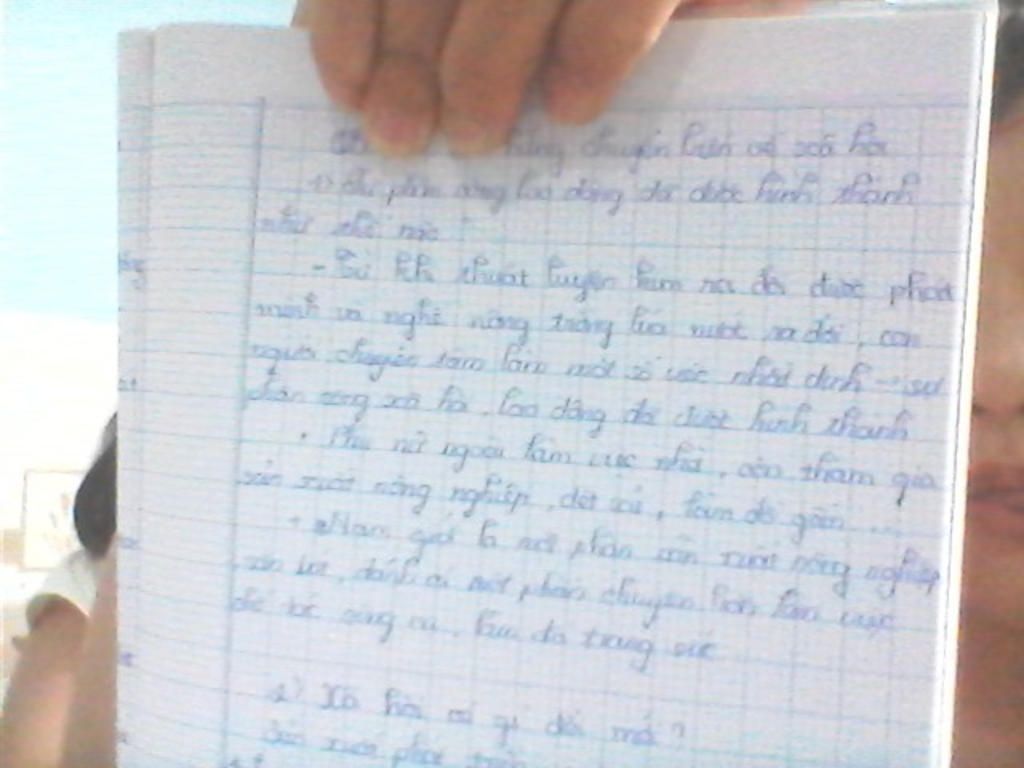 những chuyển biến về xã hội
1) Sự phân công lao động đã được hình thành
như thế nào
- Từ khi thuật luyện kim ra đời được phát
minh và nghề nông trồng lúa nước ra đời, con
người chuyên tâm làm một số việc nhất định → sự
phân công xã hội, lao động đã được hình thành
+ Phụ nữ ngoài làm việc nhà, còn tham gia
sản xuất nông nghiệp, dệt vải, làm đồ gốm ...
+ Nam giới là một phần sản xuất nông nghiệp
săn bắt, đánh cá một phần chuyên hơn làm việc
chế tác công cụ, làm đồ trang sức
2) Xã hội có gì đổi mới?